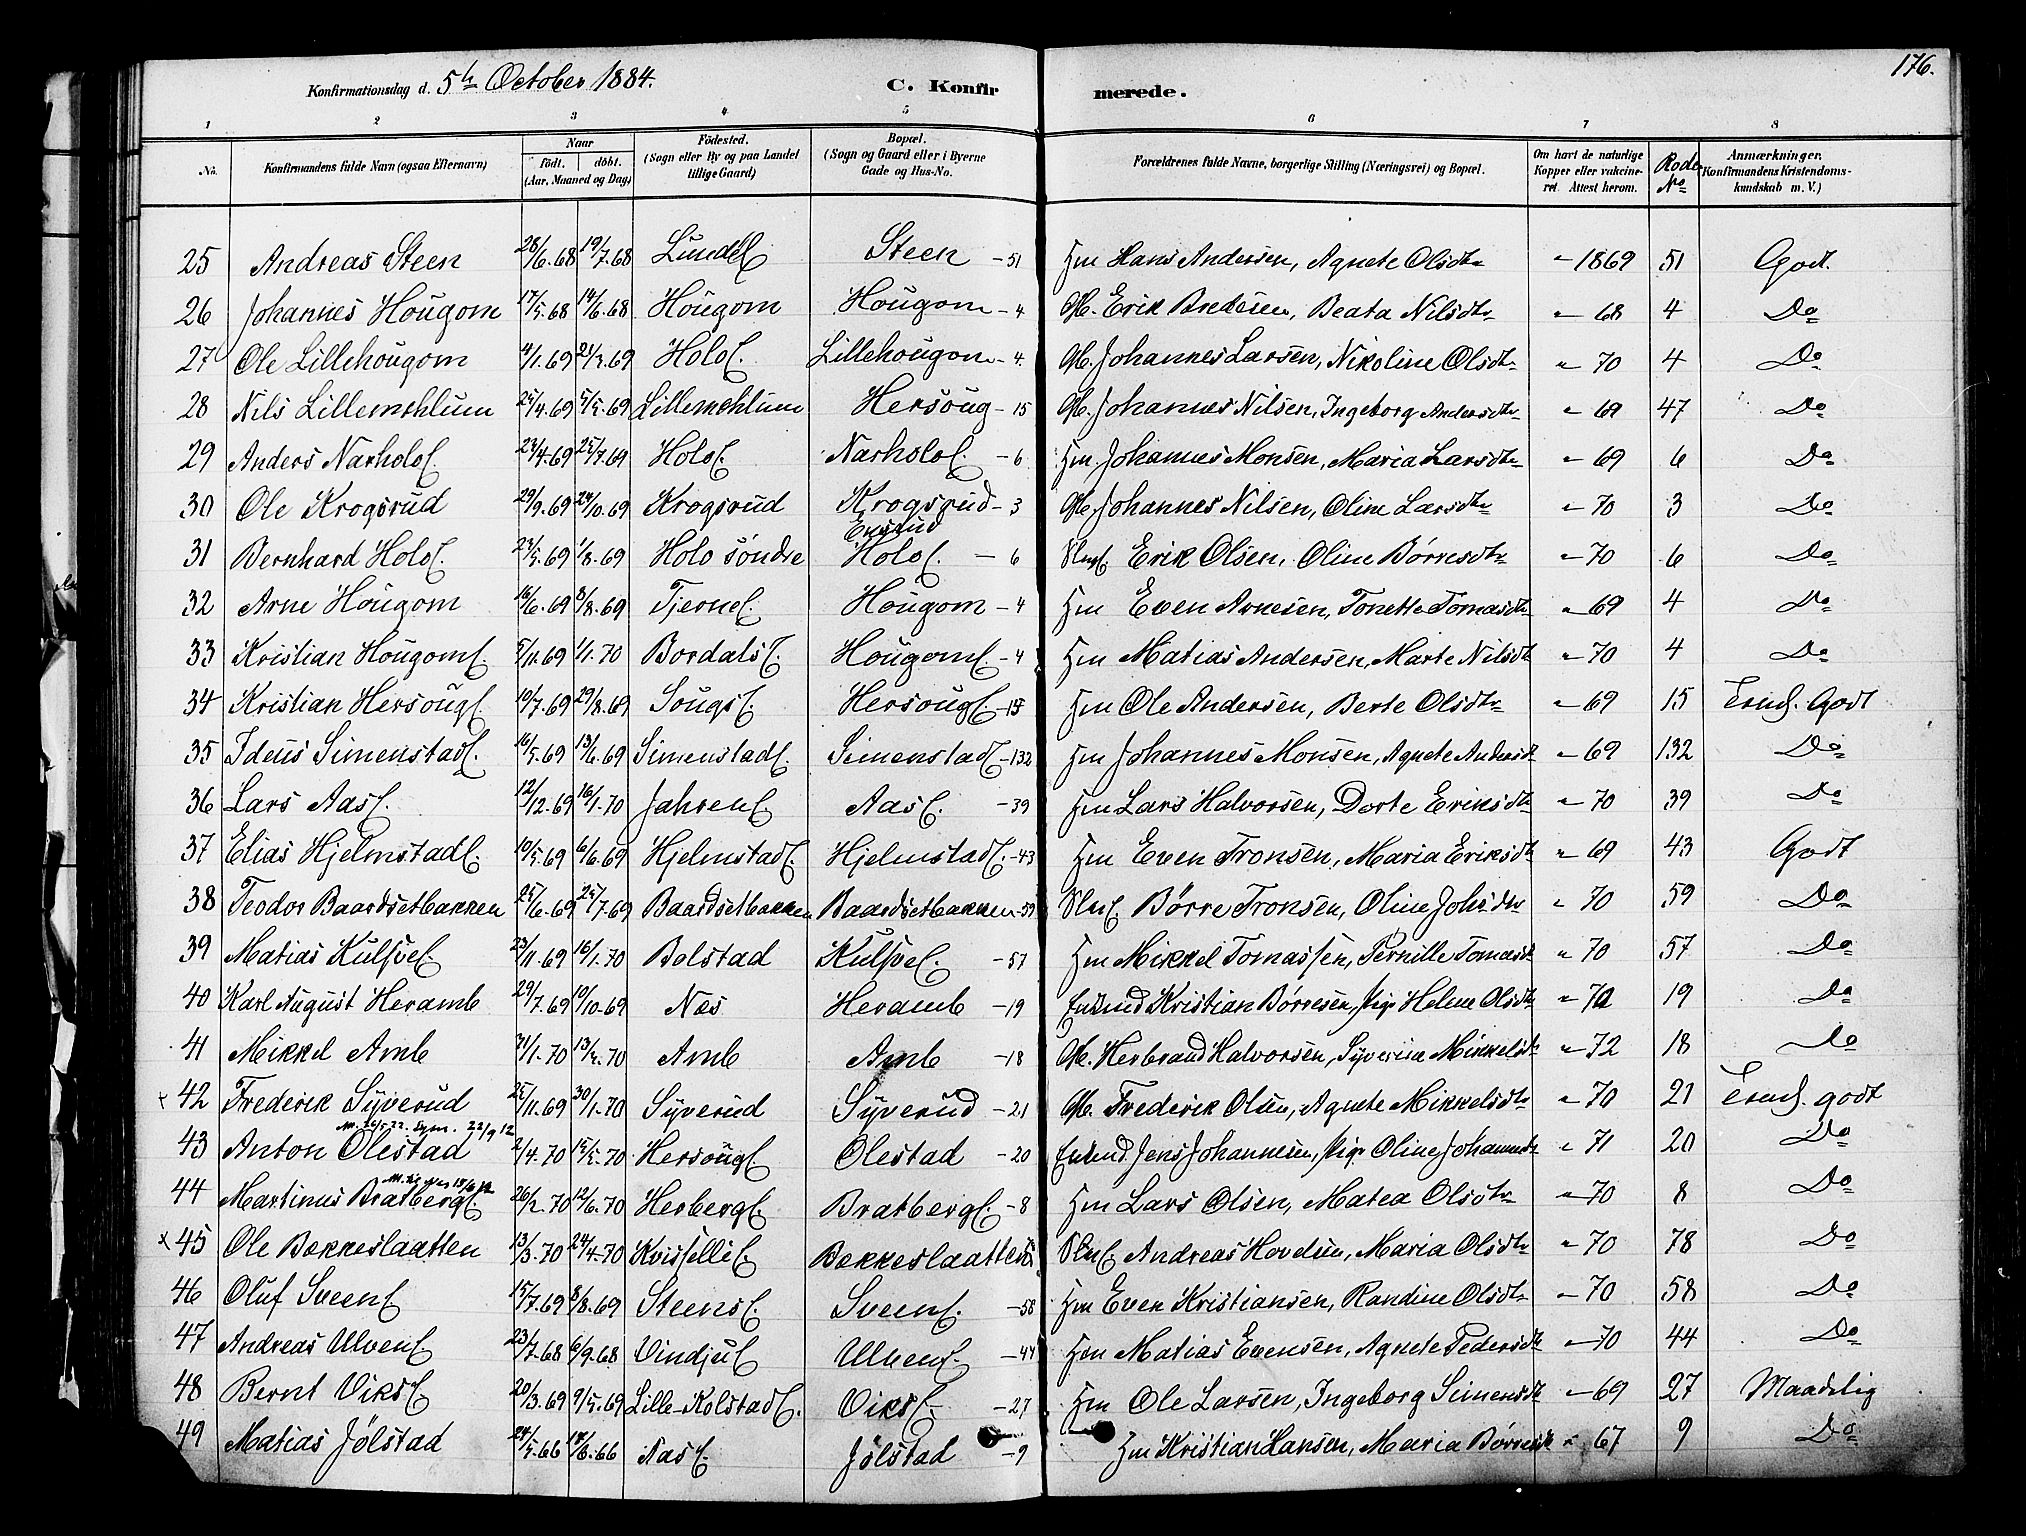 176.
Konfirmationsdag d. 5th October 1884. C. Konfirmerede.
1 2 3 4 5 6 7 8
No. Konfirmandens fulde Navn (ogsaa Efternavn) Naar födt. döbt. (Aar, Maaned og Dag) Födested. (Sogn eller By og paa Landet tillige Gaard) Bopæl. (Sogn og Gaard eller i Byerne Gade og Hus-No. Forældrenes fulde Navne, borgerlige Stilling (Næringsvei) og Bopæl. Om havt de naturlige Kopper eller vakcineret. Attest herom. Rode No Anmærkninger. (Konfirmandens Kristendomskundskab m. V.)
25 Andreas Steen 28/6.68 19/7.68 Lunde Steen - 51 Hm Hans Andersen, Agnete Olsdtr " 1869 51 Godt.
26 Johannes Hougom 17/5.68 14/6.68 Hougom Hougom - 4 Gb. Erik Bredesen, Beata Nilsdtr " 68 4 Do
27 Ole Lillehougom 4/1.69 21/3.69 Holo Lillehougom - 4. Gb. Johannes Larsen, Nikoline Olsdtr " 70 4 Do
28 Nils Lillemehlum 25/4.69 5/5.69 Lillemehlum Hersoug - 15 Gb. Johannes Nilsen, Ingeborg Andersdtr " 69 47 Do
29 Anders Narholo 23/4.69 25/7.69 Holo Narholo - 6 Hm Johannes Monsen, Maria Larsdtr " 69 6 Do
30 Ole Krogsrud 29/9.69 24/10.69 Krogsrud Krogsrud - 3 Gb. Johannes Nilsen, Oline Larsdtr " 70 3 Do
31 Bernhard Holo 23/5.69 1/8.69 Holo söndre Holo - 6 Erik Olsen, Oline Børresdtr " 70 6 Do
32 Arne Hougom 16/6.69 8/8.69 Tjerne Hougom - 4 Hm Even Arnesen, Tonette Tomasdtr " 69 4 Do
33 Kristian Hougom 5/11.69 1/1.70 Bordals Hougom - 4 Hm Matias Andersen, Marte Nilsdtr " 70 4 Do
34 Kristian Hersoug 10/7.69 29/8.69 Sougs Hersoug - 15 Hm Ole Andersen, Berte Olsdtr " 69 15 Temd. Godt
35 Ideus Simenstad 16/5.69 13/6.69 Simenstad Simenstad - 132 Hm Johannes Monsen, Agnete Andersdtr " 69 132 Do
36 Lars Aas 12/12.69 16/1.70 Jahren Aas - 39 Hm Lars Halvorsen, Dorte Eriksdtr " 70 39 Do
37 Elias Hjelmstad 10/5.69 6/6.69 Hjelmstad Hjelmstad - 43 Hm Even Tronsen, Maria Eriksdtr " 69 43 Godt
38 Teodor Baardsetbakken 25/6.69 25/7.69 Baardsetbakken Baardsetbakken - 59 Børre Tronsen, Oline Johsdtr " 70 59 Do
39 Matias Kulsve 23/11.69 16/1.70 Bolstad Kulsve - 57 Hm Mikkel Tomassen, Pernille Tomasdtr " 70 57 Do
40 Karl August Heramb 29/7.69 10/10.69 Næs Heramb - 19 Kristian Børresen, Pige Helene Olsdtr " 70 19 Do
41 Mikkel Amb 31/1.70 13/3.70 Amb Amb - 18 Gb. Herbrand Halvorsen, Syverina Mikkelsdtr " 72 18 Do
x 42 Frederik Syverud 25/11.69 30/1.70 Syverud Syverud - 21 Gb. Frederik Olsen, Agnete Mikkelsdtr " 70 21 Temd. godt
43 Anton Olestad 2/4.70 15/5.70 Hersoug Olestad - 20 Jens Johannesen, Pige Oline Johannesdtr " 71 20 Do
44 Martinus Bratberg 26/2.70 12/6.70 Herberg Bratberg - 8 Hm Lars Olsen, Matea Olsdtr " 70 8 Do
x 45 Ole Bækkeslaatten 13/3.70 24/4.70 Bækkeslaatten Andreas Hovdsen, Maria Olsdtr " 70 78 Do
46 Oluf Sveen 15/7.69 8/8.69 Steens Sveen - 58 Hm Even Kristiansen, Randine Olsdtr " 70 58 Do
47 Andreas Ulven 23/7.68 6/9.68 Vindju Ulven - 44 Hm Matias Evensen, Agnete Pedersdtr " 70 44 Do
48 Bernt Viks 20/3.69 9/5.69 Lille-Kolstad Viks - 27 Hm Ole Larsen, Ingeborg Simensdtr " 69 27 Maadelig
49 Matias Jølstad 24/5.66 18/6.66 Aas Jølstad - 9 Hm Kristian Hansen, Maria Børresdtr " 67 9 Do